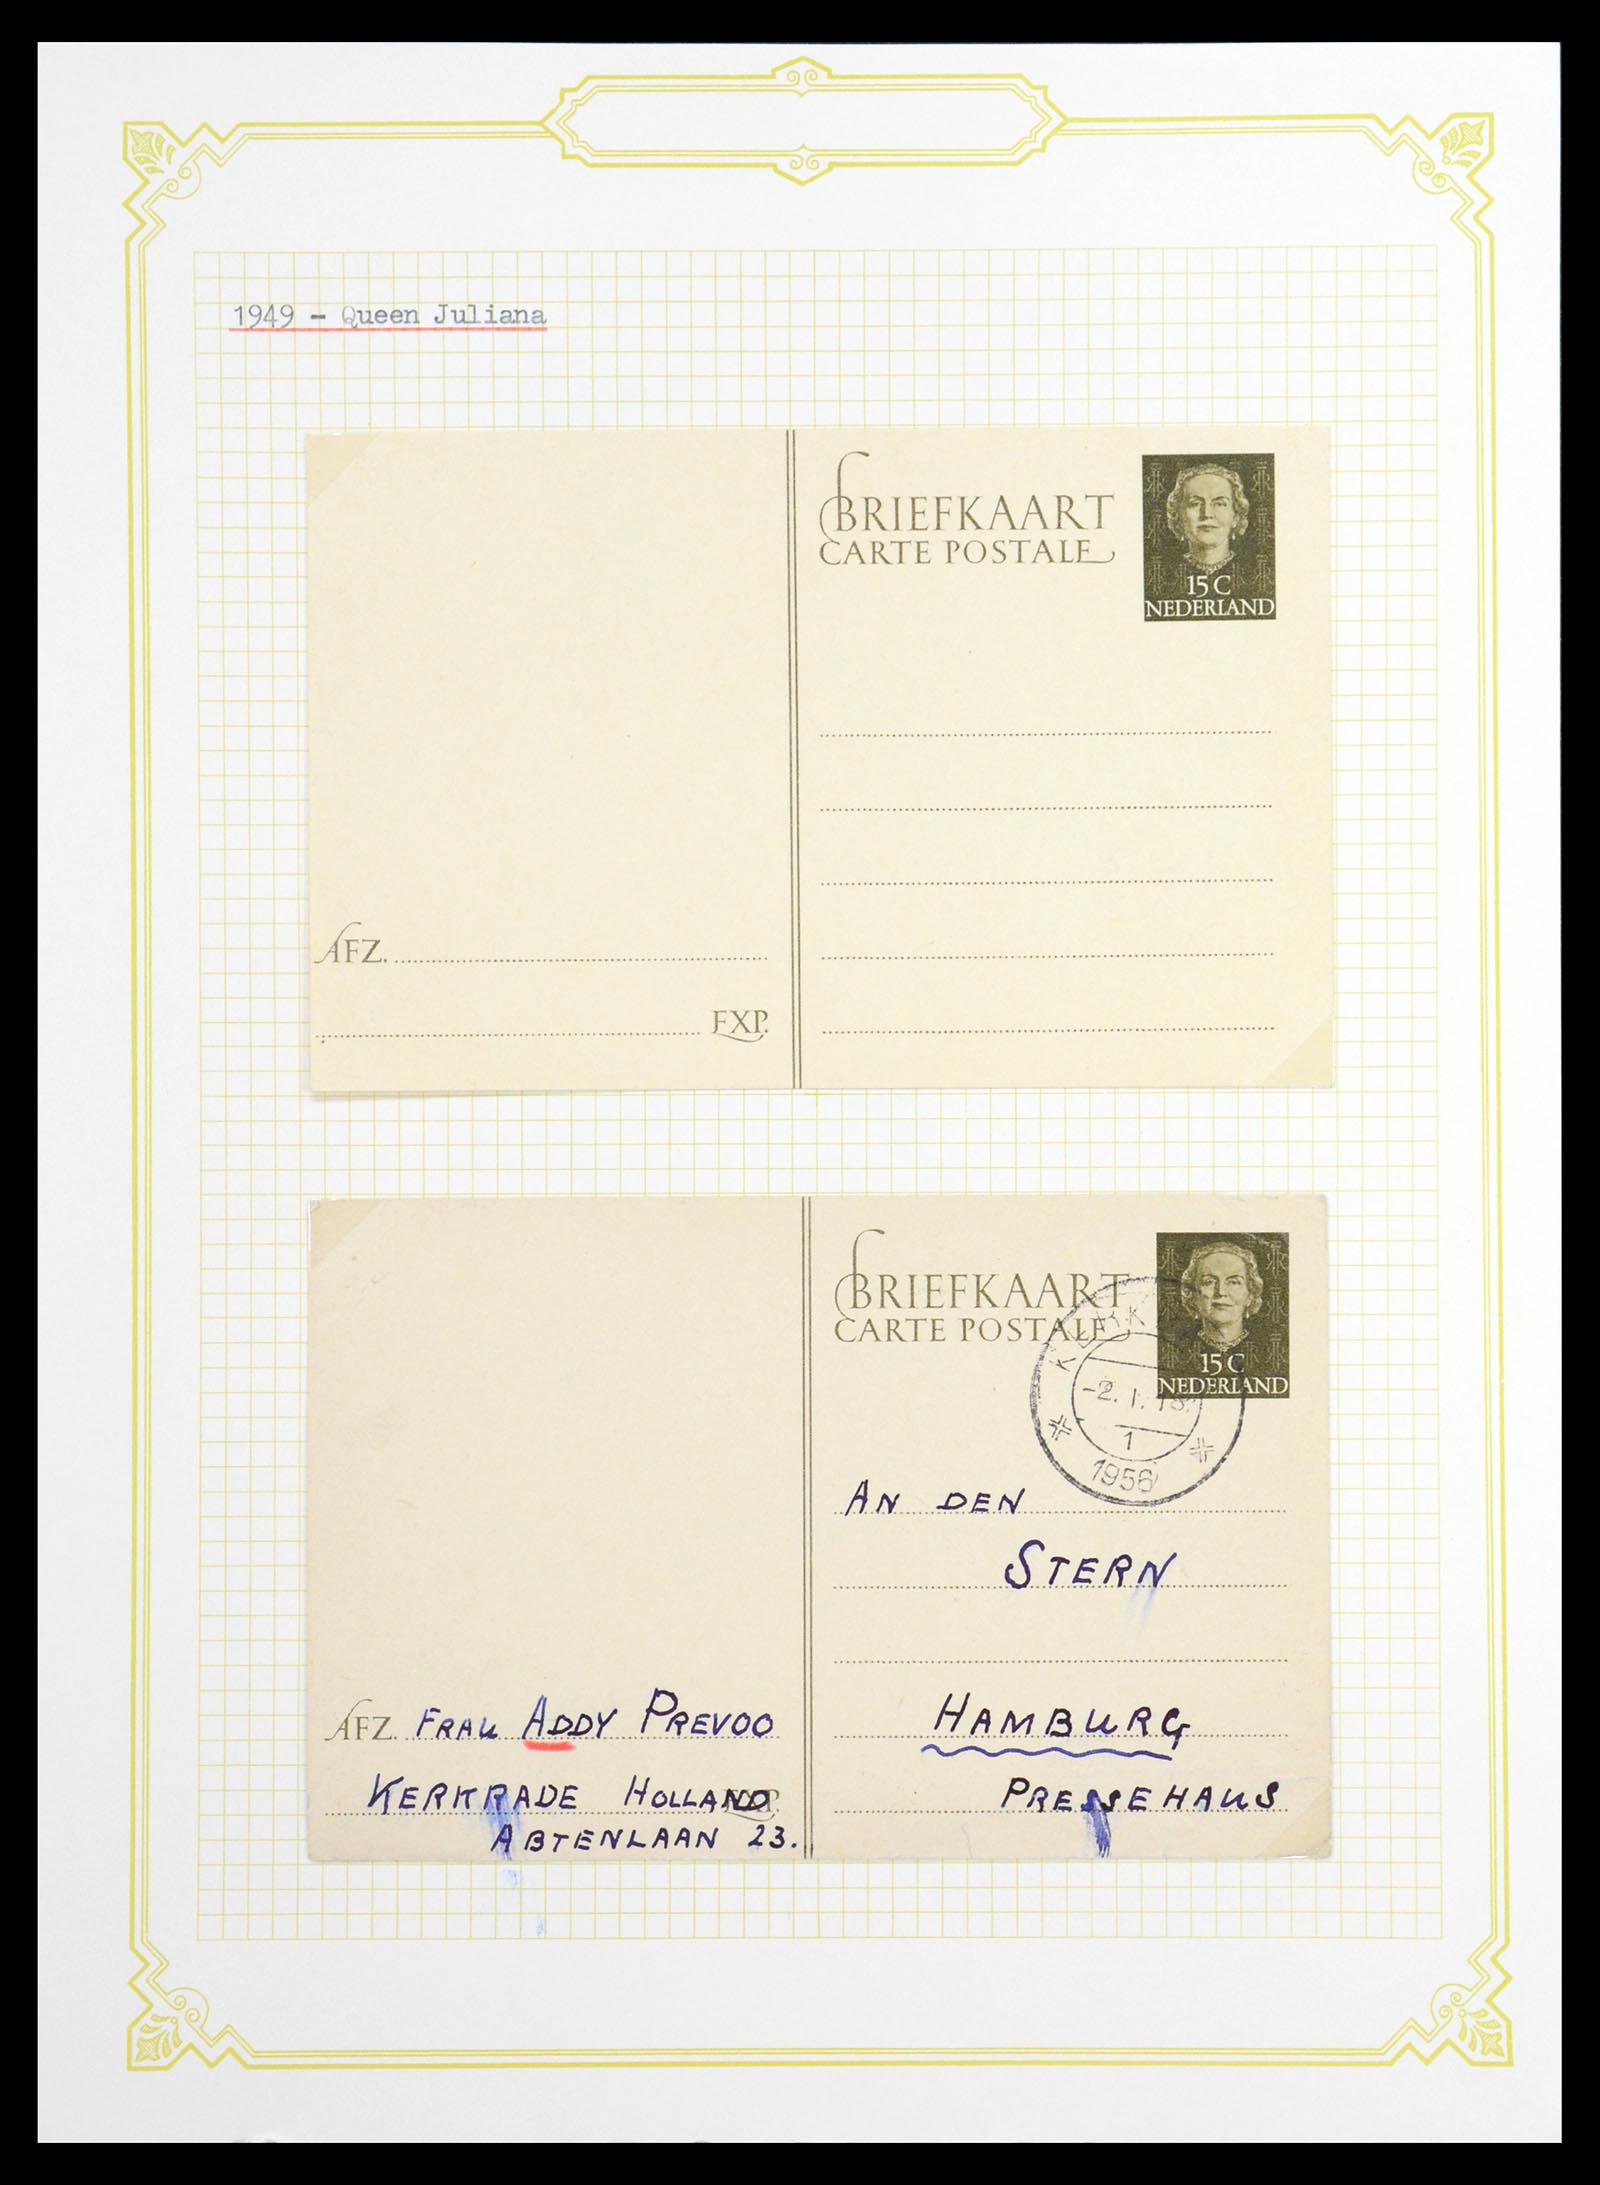 1949 - Queen Juliana
BRIEFKAART
CARTE POSTALE
15 C
NEDERLAND
AFZ.
EXP.
BRIEFKAART
CARTE POSTALE
15 C
NEDERLAND
-2. 1. 18.
1
1956
AN DEN
STERN
HAMBURG
PRESSEHAUS
AFZ. FRAU ADDY PREVOO
KERKRADE HOLLAND EXP.
ABTENLAAN 23.